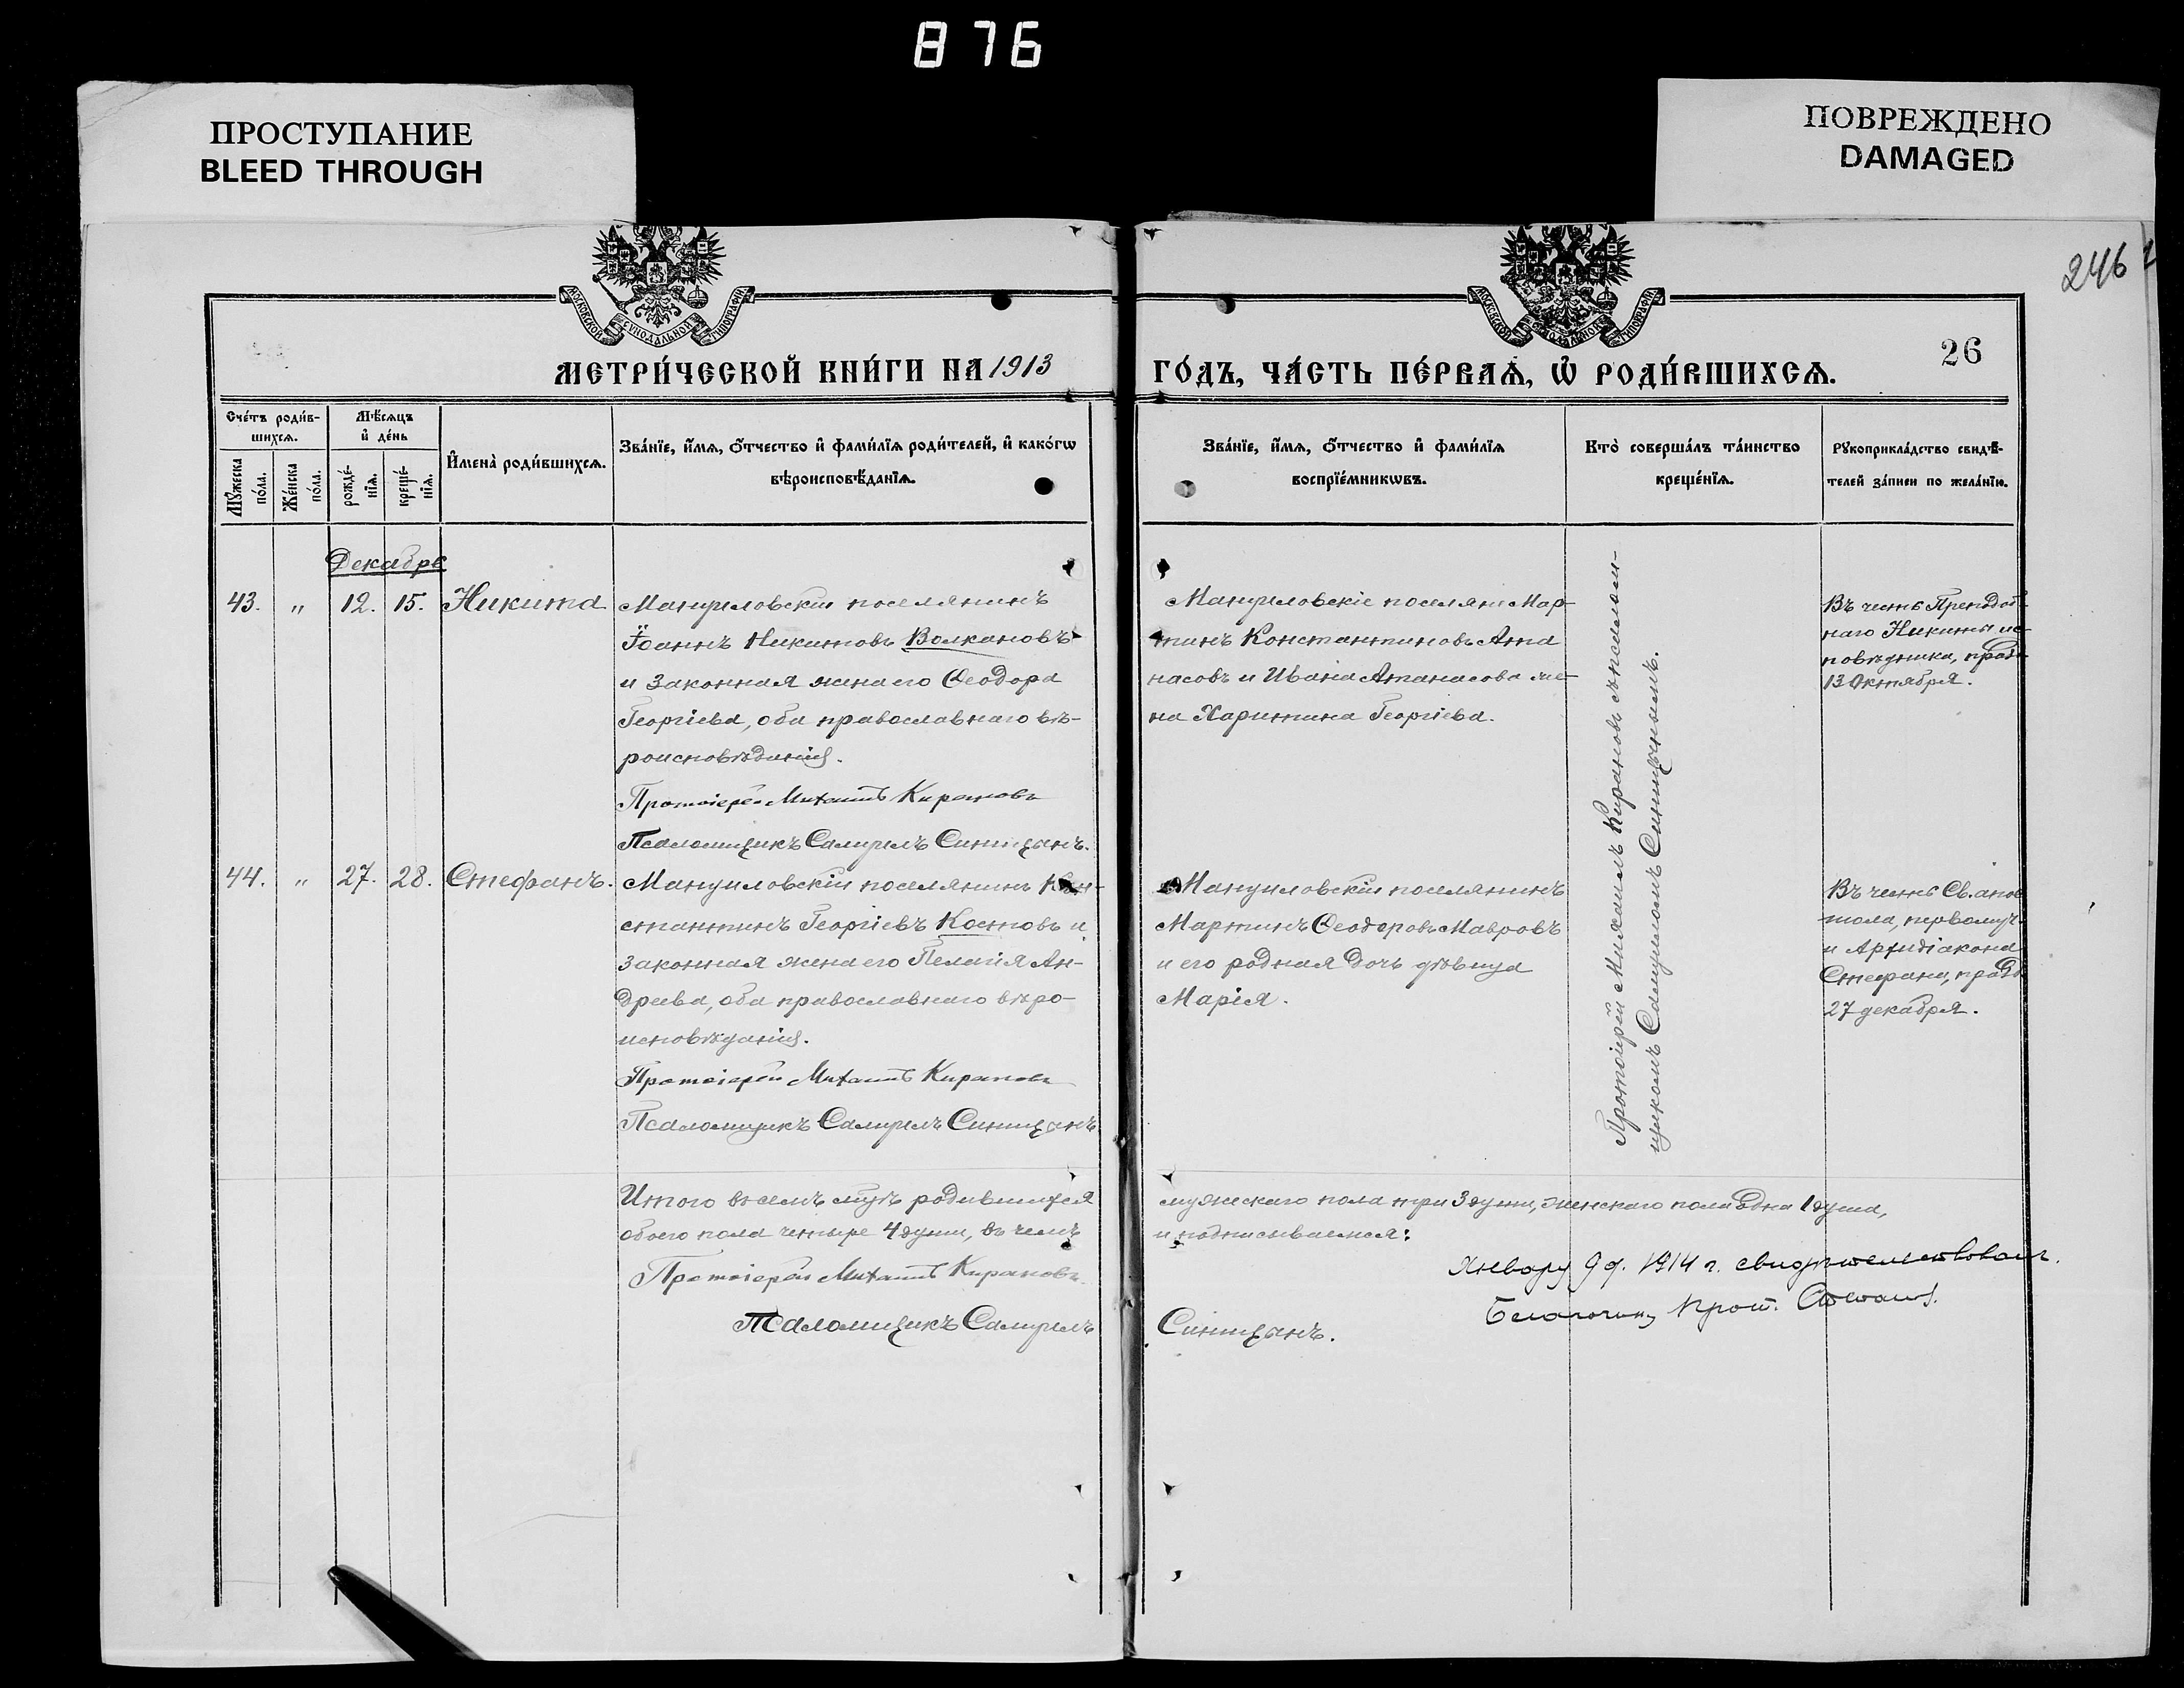 876
ПРОСТУПАНИЕ
BLEED THROUGH
ПОВРЕЖДЕНО
DAMAGED
246
МОСКОВСКОЙ СѴНОДАЛЬНОЙ ТИПОГРАФІИ
МОСКОВСКОЙ СѴНОДАЛЬНОЙ ТИПОГРАФІИ
26
МЕТРИ́ЧЕСКОЙ КНИ́ГИ НА 1913
ГО́ДЪ, ЧА́СТЬ ПЕ́РВАѦ, Ѡ҆ РОДИ́ВШИХСѦ.
Сче́тъ роди́в-
шихсѧ.
Мꙋ́жеска по́ла.
Же́нска по́ла.
Мѣ́сѧцъ
и҆ де́нь
рожде́-нїѧ.
креще́-нїѧ.
И҆мена̀ роди́вшихсѧ.
Зва́нїе, и҆́мѧ, ѻ҆́тчество и҆ фами́лїѧ роди́телей, и҆ како́гѡ
вѣроисповѣ́данїѧ.
Зва́нїе, и҆́мѧ, ѻ҆́тчество и҆ фами́лїѧ
воспрїе́мникѡвъ.
Кто̀ соверша́лъ та́инство
креще́нїѧ.
Рꙋкоприкла́дство свидѣ́-
телей за́писи по жела́нїю.
Декабрь
43. " 12. 15. Никита
Мануиловскій поселянинъ
Іоаннъ Никитовъ Волкановъ
и законная жена его Ѳеодора
Георгіева, оба православнаго вѣ-
роисповѣданія.
Протоіерей Михаилъ Кирановъ
Псаломщикъ Самуилъ Синицынъ.
Мануиловскіе поселяне Мар-
тинъ Константиновъ Ата
насовъ и Ивана Атанасова же-
на Харитина Георгіева.
Протоіерей Михаилъ Кирановъ съ псалом-
щикомъ Самуиломъ Синицынымъ.
Въ честь Преподоб-
наго Никиты ис-
повѣдника, празд
13 Октября.
44. " 27. 28. Стефанъ.
Мануиловскій поселянинъ Кон-
стантинъ Георгіевъ Костовъ и
законная жена его Пелагія Ан-
дреева, оба православнаго вѣро-
исповѣданія.
Протоіерей Михаилъ Кирановъ
Псаломщикъ Самуилъ Синицынъ
Мануиловскій поселянинъ
Мартинъ Ѳеодоровъ Мавровъ
и его родная дочь дѣвица
Марія.
Въ честь Св. апос
тола, первомуч.
и Архидіакона
Стефана, празд
27 декабря.
Итого въ семъ мѣс. родившихся
обоего пола четыре 4 души, въ чемъ
Протоіерей Михаилъ Кирановъ
Псаломщикъ Самуилъ
мужескаго пола три 3 души, женскаго пола одна 1 душа,
и подписываемся:
Синицынъ.
Январу 9 д. 1914 г. свидѣтельствовалъ.
Благочин. Прот.